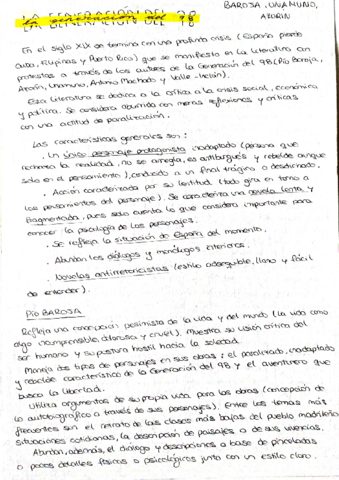 LA GENERACIÓN DEL 98
BAROJA, UNAMUNO,
AZORÍN
En el siglo XIX se termina con una profunda crisis (España pierde
Cuba, Filipinas y Puerto Rico) que se manifiesta en la literatura con
protestas a través de los autores de la Generación del 98 (Pío Baroja,
Azorín, Unamuno, Antonio Machado y Valle-Inclán).
Esta literatura se dedica a la crítica a la crisis social, económica
y política. Se considera aburrida con meras reflexiones y críticas
con una actitud de paralización.
Las características generales son:
. Un único personaje protagonista inadaptado (persona que
rechaza la realidad, no se arregla, es antiburgués y rebelde aunque
solo en el pensamiento), cerdeado a un final trágico o desdichado.
. Acción caracterizada por su lentitud (todo gira en torno a
los pensamientos del personaje). Se caracteriza una novela lenta y
fragmentada, pues solo cuenta lo que considera importante para
conocer la psicología de los personajes.
. Se refleja la situación de España del momento.
. Abundan los diálogos y monólogos interiores.
. Novelas antirretoricistas (estilo asequible, llano y fácil
de entender).
PÍO BAROJA
Refleja una concepción pesimista de la vida y del mundo (la vida como
algo incomprensible, dolorosa y cruel). Muestra su visión crítica del
ser humano y su postura hostil hacia la sociedad.
Maneja dos tipos de personajes en sus obras: el paralizado, inadaptado
y rebelde característico de la Generación del 98 y el aventurero que
busca la libertad.
Utiliza argumentos de su propia vida para las obras (concepción de
lo autobiográfico a través de sus personajes). Entre los temas más
frecuentes son el retrato de las clases más bajas del pueblo madrileño
situaciones cotidianas, la descripción de paisajes o de sus vivencias.
Abundan, además, el diálogo y descripciones a base de pinceladas
o pocos detalles físicos o psicológicos junto con un estilo claro.